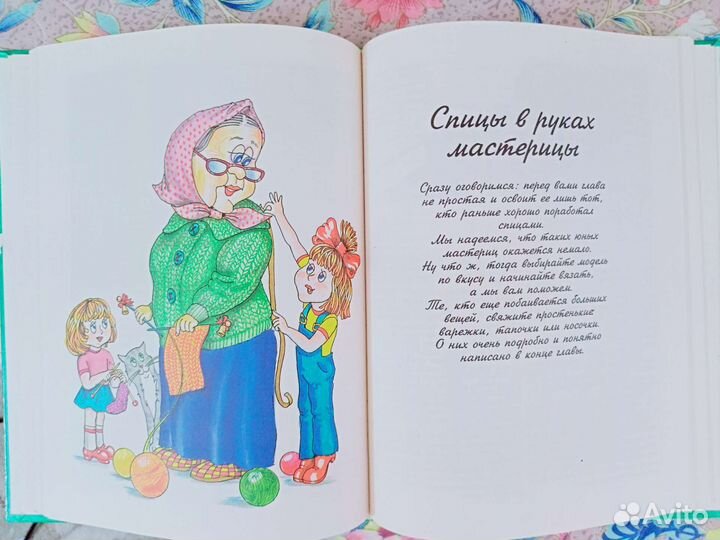 Спицы в руках
мастерицы
Сразу оговоримся: перед вами глава
не простая и освоит ее лишь тот,
кто раньше хорошо поработал
спицами.
Мы надеемся, что таких юных
мастериц окажется немало.
Ну что ж, тогда выбирайте модель
по вкусу и начинайте вязать,
а мы вам поможем.
Те, кто еще побаивается больших
вещей, свяжите простенькие
варежки, тапочки или носочки.
О них очень подробно и понятно
написано в конце главы.
Avito